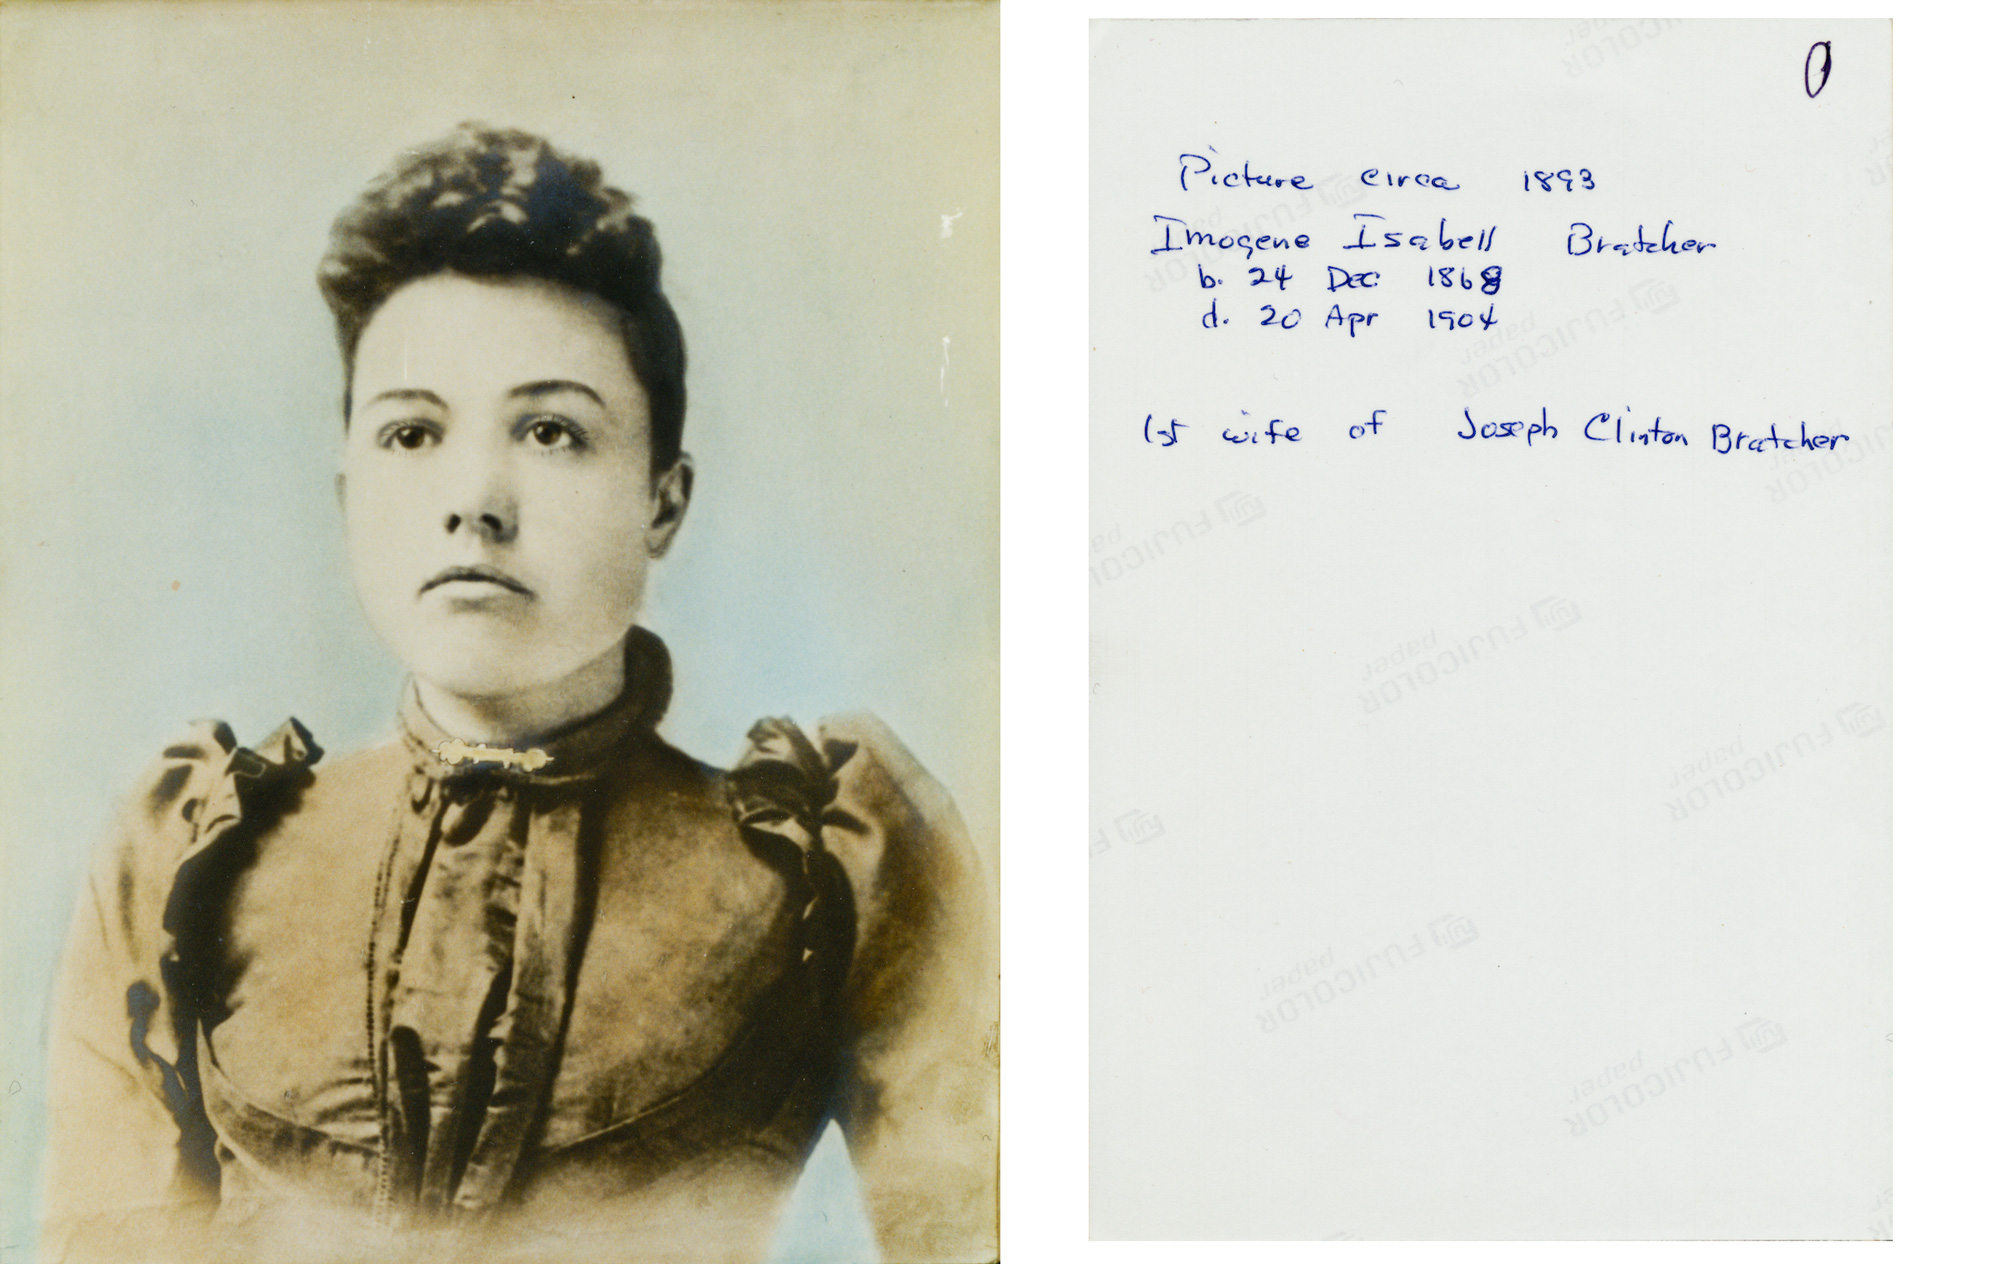 0
Picture circa 1893
Imogene Isabell Bratcher
b. 24 Dec 1868
d. 20 Apr 1904
1st wife of Joseph Clinton Bratcher
FUJICOLOR
paper
FUJICOLOR
paper
FUJICOLOR
paper
FUJICOLOR
paper
FUJICOLOR
paper
FUJICOLOR
paper
FUJICOLOR
paper
FUJICOLOR
paper